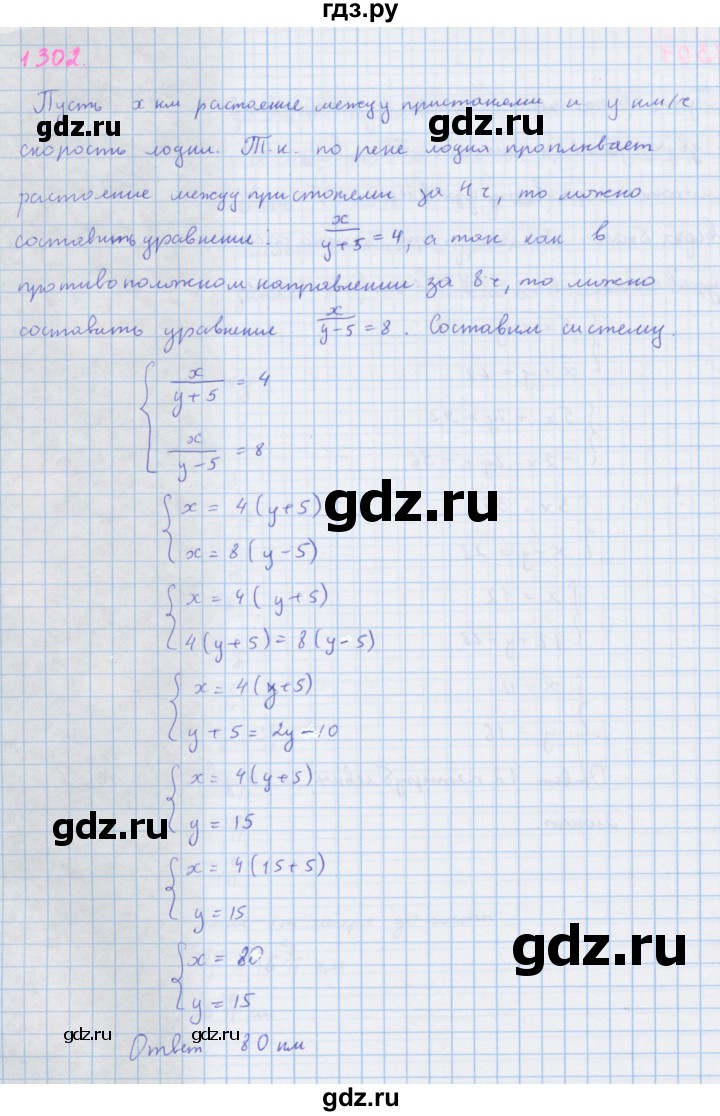 гдз.ру
1302.
Пусть x км растоение между пристанями и y км/ч
gdz.ru
gdz.ru
скорость лодки. Т.к. по реке лодка проплывает
растояние между пристанями за 4ч, то можно
составить уравнение: x/(y+5) = 4, а так как в
противоположном направлении за 8ч, то можно
составить уравнение x/(y-5) = 8. Составим систему.
x/(y+5) = 4
x/(y-5) = 8
gdz.ru
x = 4(y+5)
x = 8(y-5)
x = 4(y+5)
4(y+5) = 8(y-5)
x = 4(y+5)
y+5 = 2y-10
x = 4(y+5)
y = 15
gdz.ru
x = 4(15+5)
y = 15
gdz.ru
x = 80
y = 15
Ответ 80 км
gdz.ru
gdz.ru
gdz.ru